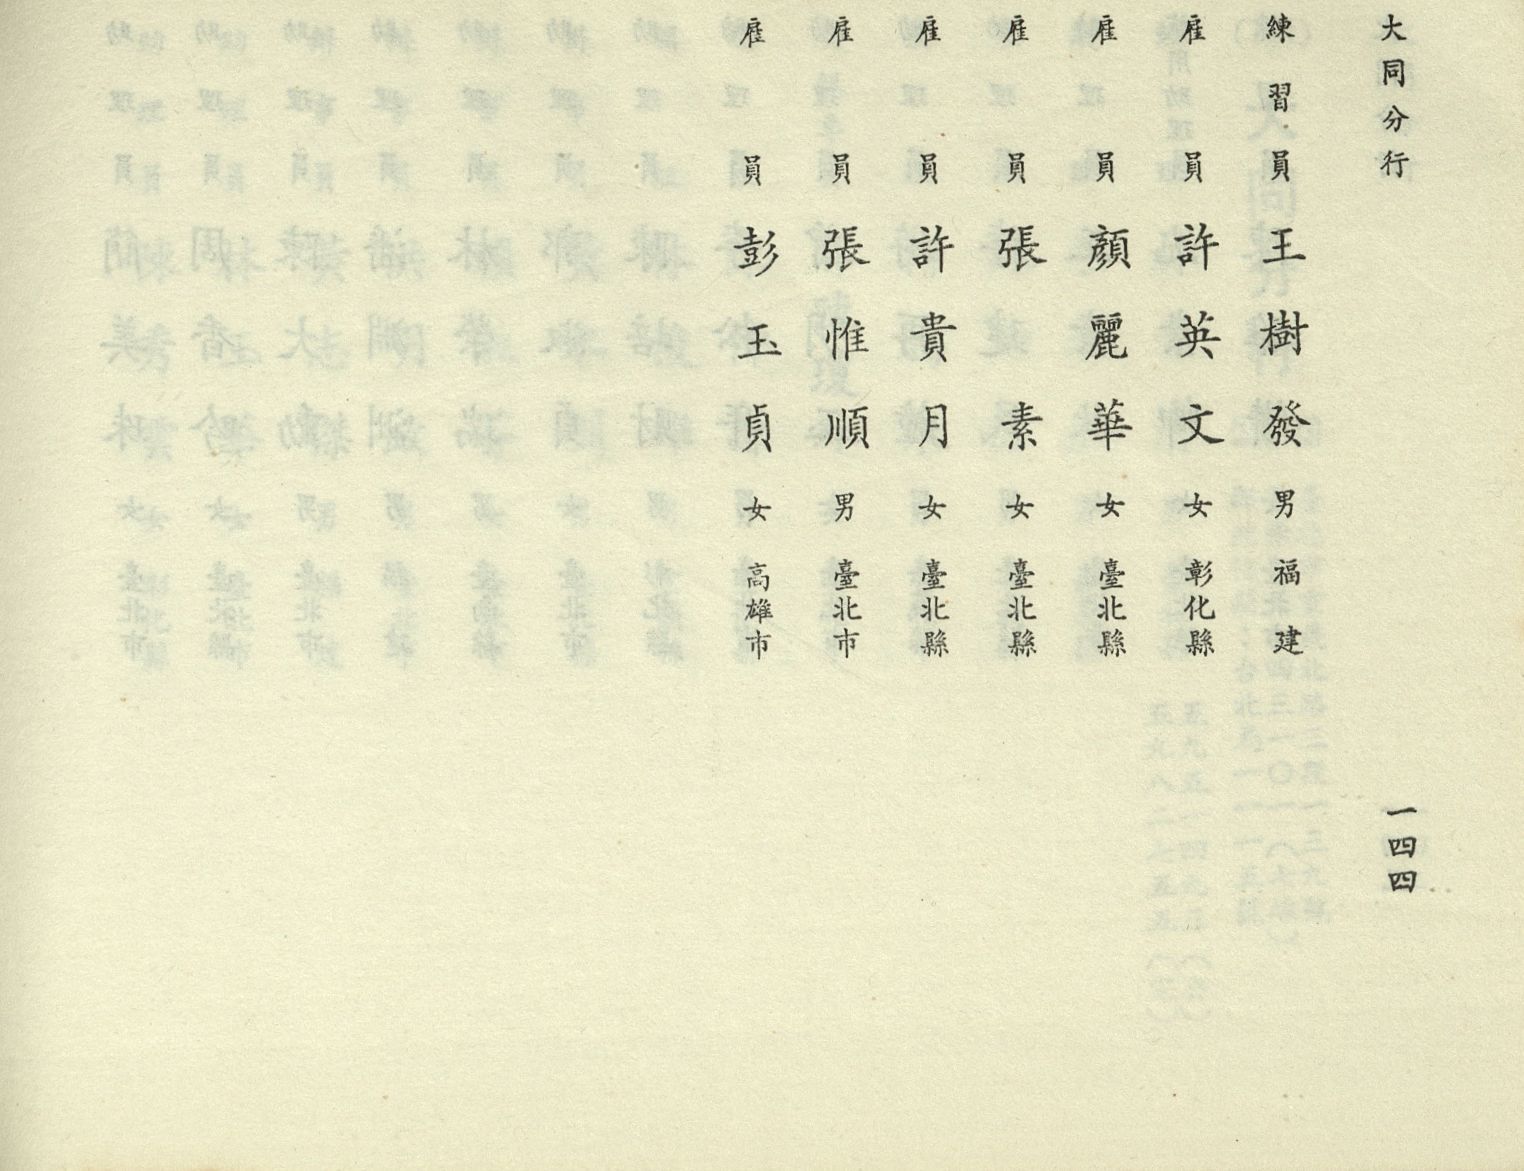 大同分行 一四四
練習員 王樹發 男 福建
雇員 許英文 女 彰化縣
雇員 顏麗華 女 臺北縣
雇員 張素 女 臺北縣
雇員 許貴月 女 臺北縣
雇員 張惟順 男 臺北市
雇員 彭玉貞 女 高雄市